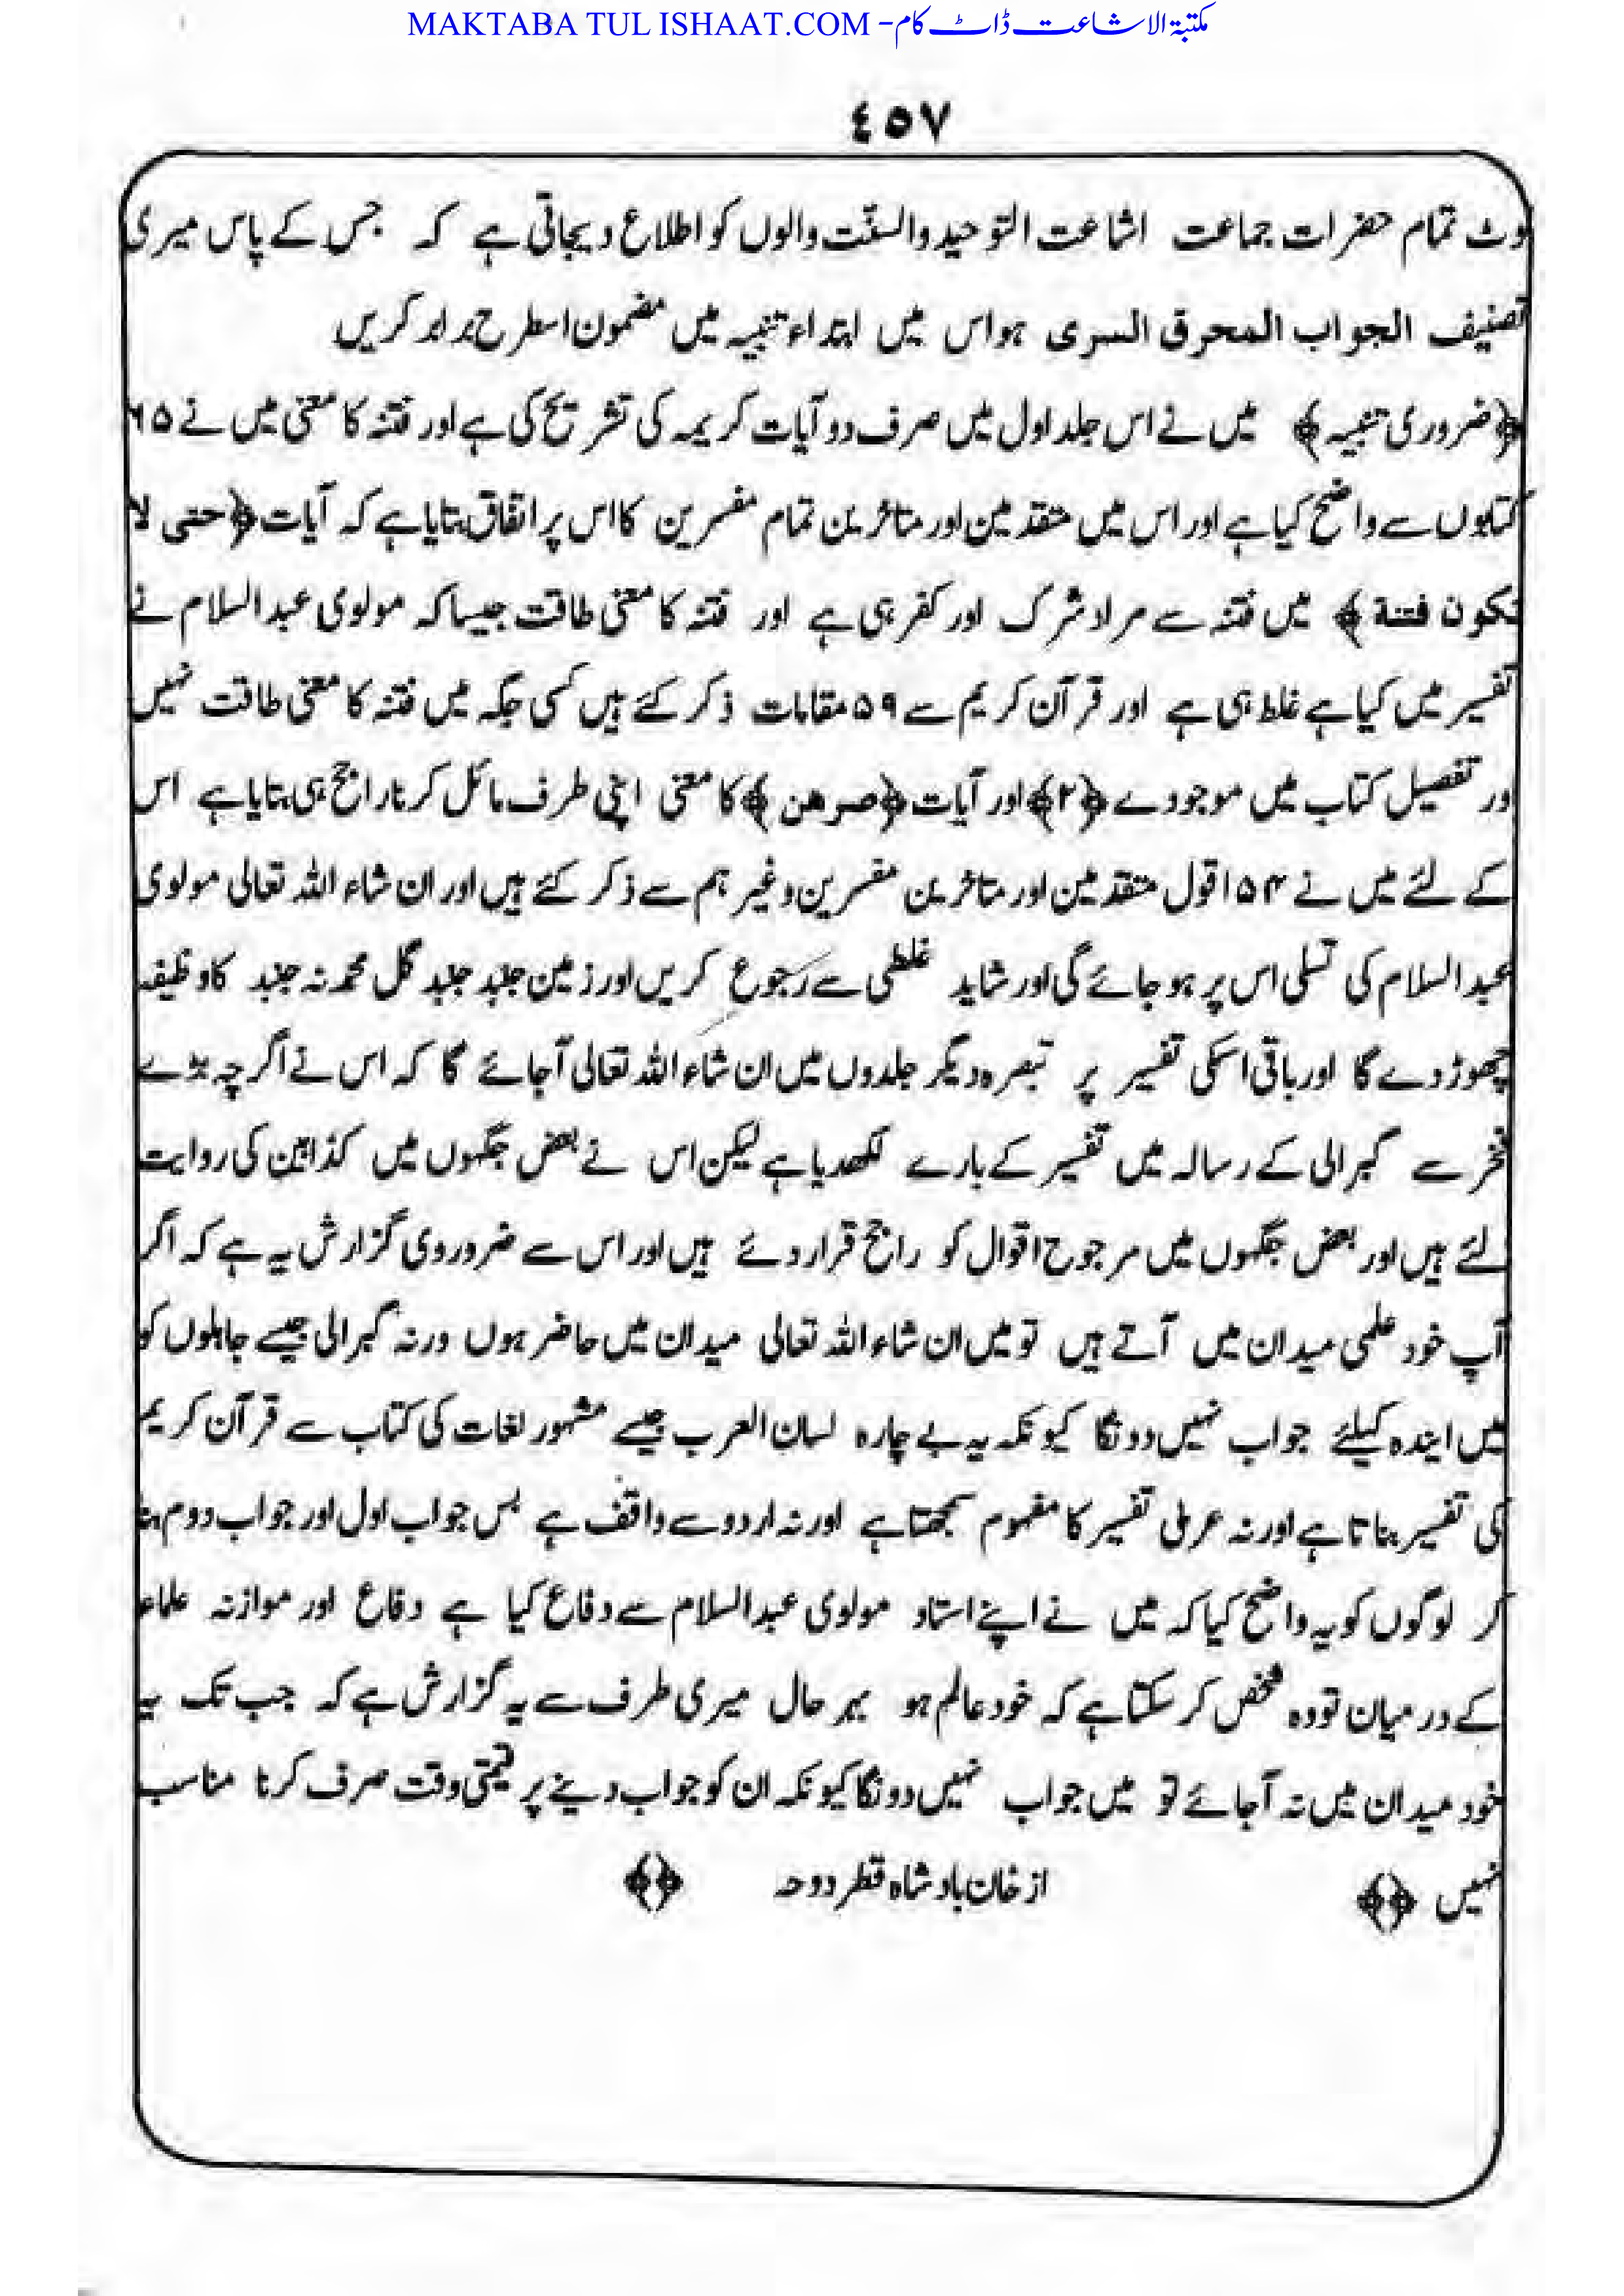 MAKTABA TUL ISHAAT.COM - مکتبۃ الاشاعت ڈاٹ کام
٤٥٧
وٹ تمام حضرات جماعت اشاعت التوحید والسنّت والوں کو اطلاع دیجاتی ہے کہ جس کے پاس میری
تصنیف الجواب المحرق السری ہو اس میں ابتداء تنبیہ میں مضمون اسطرح برابر کریں
﴿ضروری تنبیہ﴾ میں نے اس جلد اول میں صرف دو آیات کریمہ کی تشریح کی ہے اور فتنہ کا معنی میں نے ٦٥
کتابوں سے واضح کیا ہے اور اس میں متقدمین اور متاخرین تمام مفسرین کا اس پر اتفاق بتایا ہے کہ آیات ﴿حتی لا
تکون فتنة﴾ میں فتنہ سے مراد شرک اور کفر ہی ہے اور فتنہ کا معنی طاقت جیسا کہ مولوی عبد السلام نے
تفسیر میں کیا ہے غلط ہی ہے اور قرآن کریم سے ٥٩ مقامات ذکر کئے ہیں کسی جگہ میں فتنہ کا معنی طاقت نہیں
اور تفصیل کتاب میں موجود ے ﴿٢﴾ اور آیات ﴿صرهن﴾ کا معنی اپنی طرف مائل کرنا راجح ہی بتایا ہے اس
کے لئے میں نے ١٥٤ قول متقدمین اور متاخرین مفسرین وغیر ہم سے ذکر کئے ہیں اور ان شاء اللہ تعالی مولوی
عبد السلام کی تسلی اس پر ہو جائے گی اور شاید غلطی سے رجوع کریں اور زمین جنبد جنبد گل محمد نہ جنبد کا وظیفہ
چھوڑ دے گا اور باقی اسکی تفسیر پر تبصرہ دیگر جلدوں میں ان شاء اللہ تعالی آجائے گا کہ اس نے اگرچہ بڑے
فخر سے گبرالی کے رسالہ میں تفسیر کے بارے لکھدیا ہے لیکن اس نے بعض جگہوں میں کذابین کی روایت
لئے ہیں اور بعض جگہوں میں مرجوح اقوال کو راجح قرار دئے ہیں اور اس سے ضروروی گزارش یہ ہے کہ اگر
آپ خود علمی میدان میں آتے ہیں تو میں ان شاء اللہ تعالی میدان میں حاضر ہوں ورنہ گبرالی جیسے جاہلوں کو
میں ایندہ کیلئے جواب نہیں دونگا کیونکہ یہ بے چارہ لسان العرب جیسے مشہور لغات کی کتاب سے قرآن کریم
کی تفسیر بناتا ہے اور نہ عربی تفسیر کا مفہوم سمجھتا ہے اور نہ اردو سے واقف ہے بس جواب اول اور جواب دوم بنا
کر لوگوں کو یہ واضح کیا کہ میں نے اپنے استاد مولوی عبد السلام سے دفاع کیا ہے دفاع اور موازنہ علماء
کے درمیان تو وہ شخص کر سکتا ہے کہ خود عالم ہو بہر حال میری طرف سے یہ گزارش ہے کہ جب تک یہ
خود میدان میں نہ آجائے تو میں جواب نہیں دونگا کیونکہ ان کو جواب دینے پر قیمتی وقت صرف کرنا مناسب
نہیں ﴿﴾ از خان بادشاہ قطر دوحہ ﴿﴾